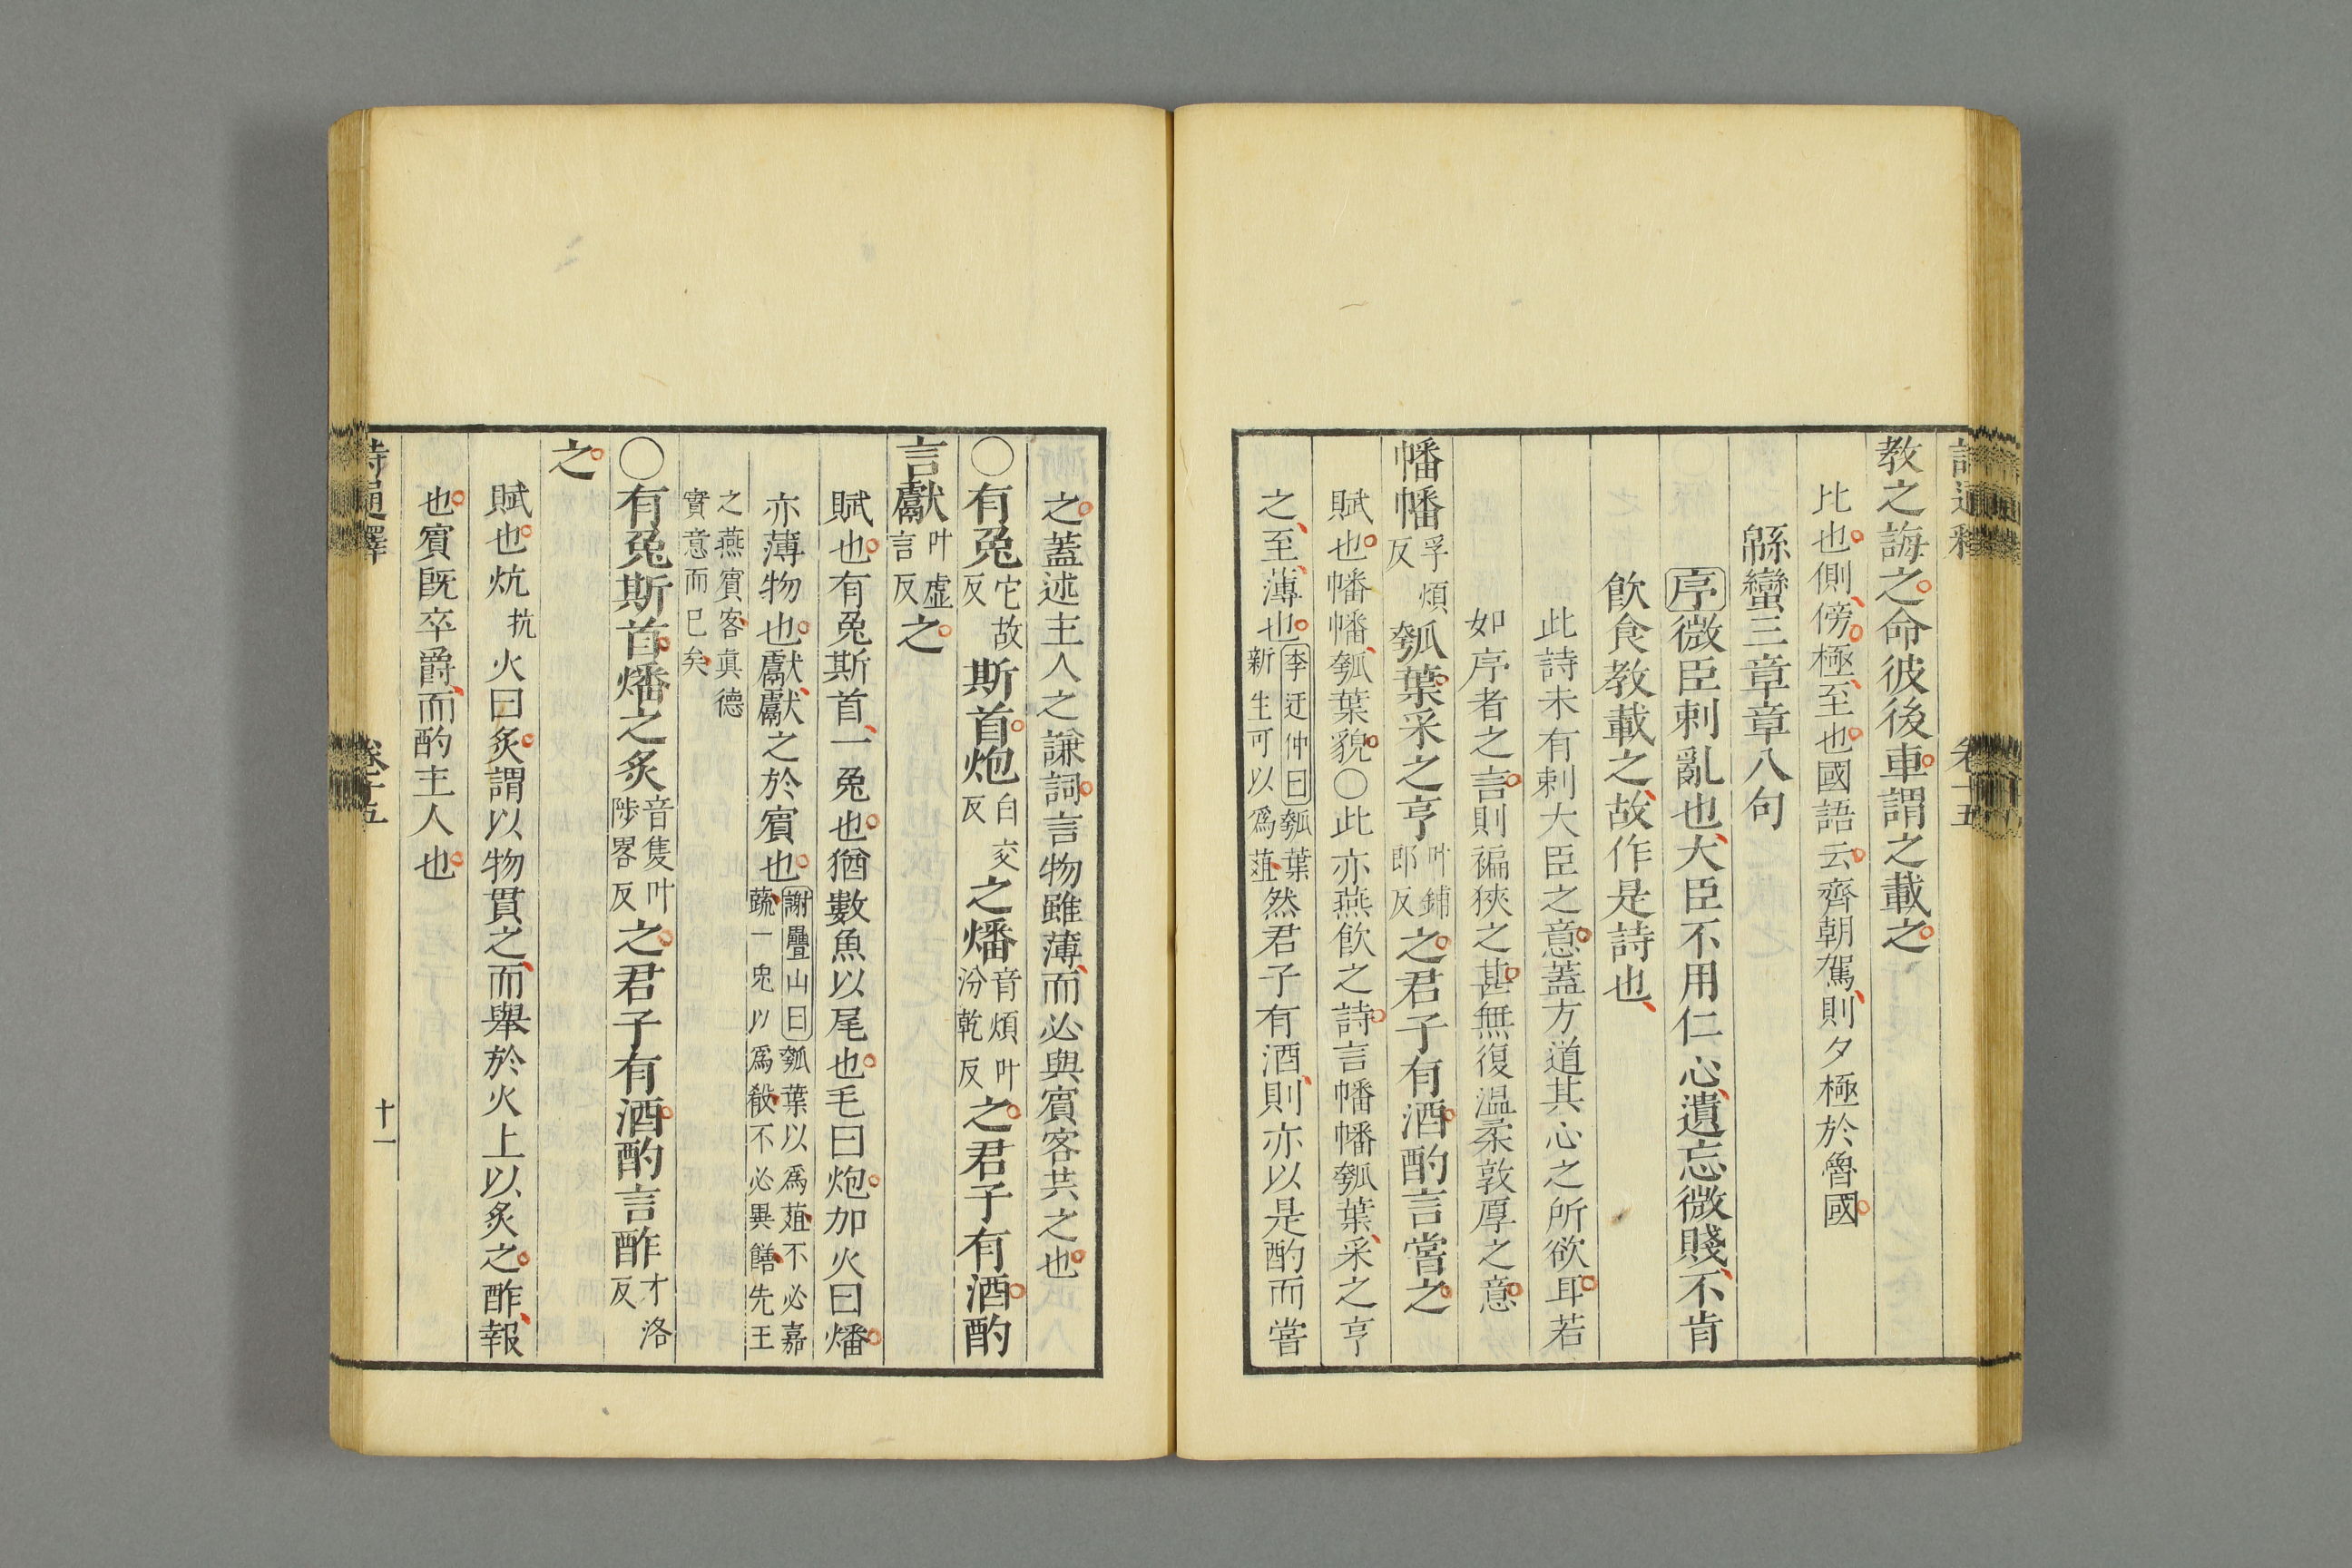 教之誨之命彼後車謂之載之
比也側傍極至也國語云齊朝駕則夕極於魯國
緜蠻三章章八句
序微臣刺亂也大臣不用仁心遺忘微賤不肯
飲食教載之故作是詩也
此詩未有刺大臣之意蓋方道其心之所欲耳若
如序者之言則褊狹之甚無復温柔敦厚之意
幡幡孚煩反瓠葉采之亨叶鋪郎反之君子有酒酌言嘗之
賦也幡幡瓠葉貌○此亦燕飲之詩言幡幡瓠葉采之亨
之至薄也李迂仲曰瓠葉新生可以爲葅然君子有酒則亦以是酌而嘗
之蓋述主人之謙詞言物雖薄而必與賓客共之也
○有兔它故反斯首炮白交反之燔音煩叶汾乾反之君子有酒酌
言獻叶虛言反之
賦也有兔斯首一兔也猶數魚以尾也毛曰炮加火曰燔
亦薄物也獻獻之於賓也謝疊山曰瓠葉以爲葅不必嘉蔬一兔以爲殽不必異饍先王
之燕賓客眞德實意而已矣
○有兔斯首燔之炙音隻叶陟畧反之君子有酒酌言酢才洛反
之
賦也炕抗火曰炙謂以物貫之而舉於火上以炙之酢報
也賓既卒爵而酌主人也
十一